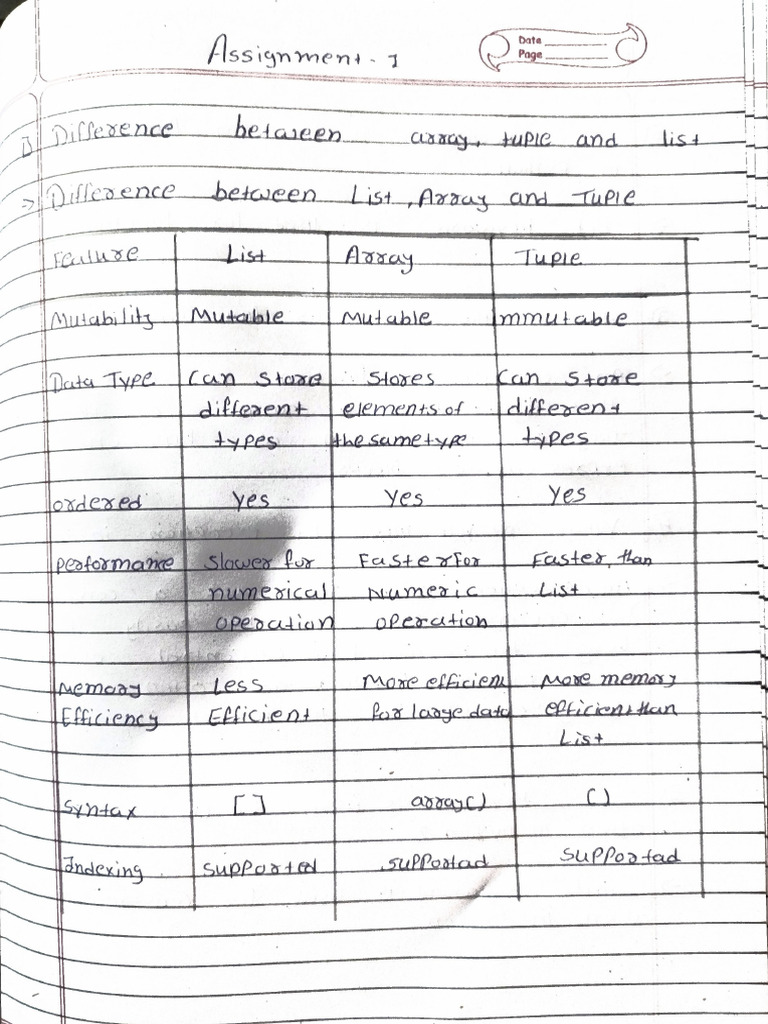 Assignment - 1
Date
Page
1) Difference between array, tuple and list
-> Difference between List, Array and Tuple
Feature List Array Tuple
Mutability Mutable Mutable Immutable
Data Type Can Store Stores Can Store
different elements of different
types the same type types
ordered Yes Yes Yes
performance Slower for Faster for Faster, than
numerical Numeric List
operation operation
Memory Less More efficient More memory
Efficiency Efficient for large data efficient than
List
Syntax [ ] array() ( )
Indexing supported supportad supportad